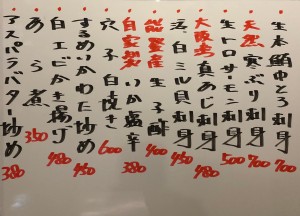 生本鮪中とろ刺身 700
天然寒ぶり刺身 700
生トロサーモン刺身 500
大阪湾真あじ刺身 480
活白ミル貝刺身 450
能登産生子酢 400
自家製いか塩辛 380
穴子白焼き 600
するめいかわた炒め 450
白エビかき揚げ 480
あら煮 350
アスパラバター炒め 380